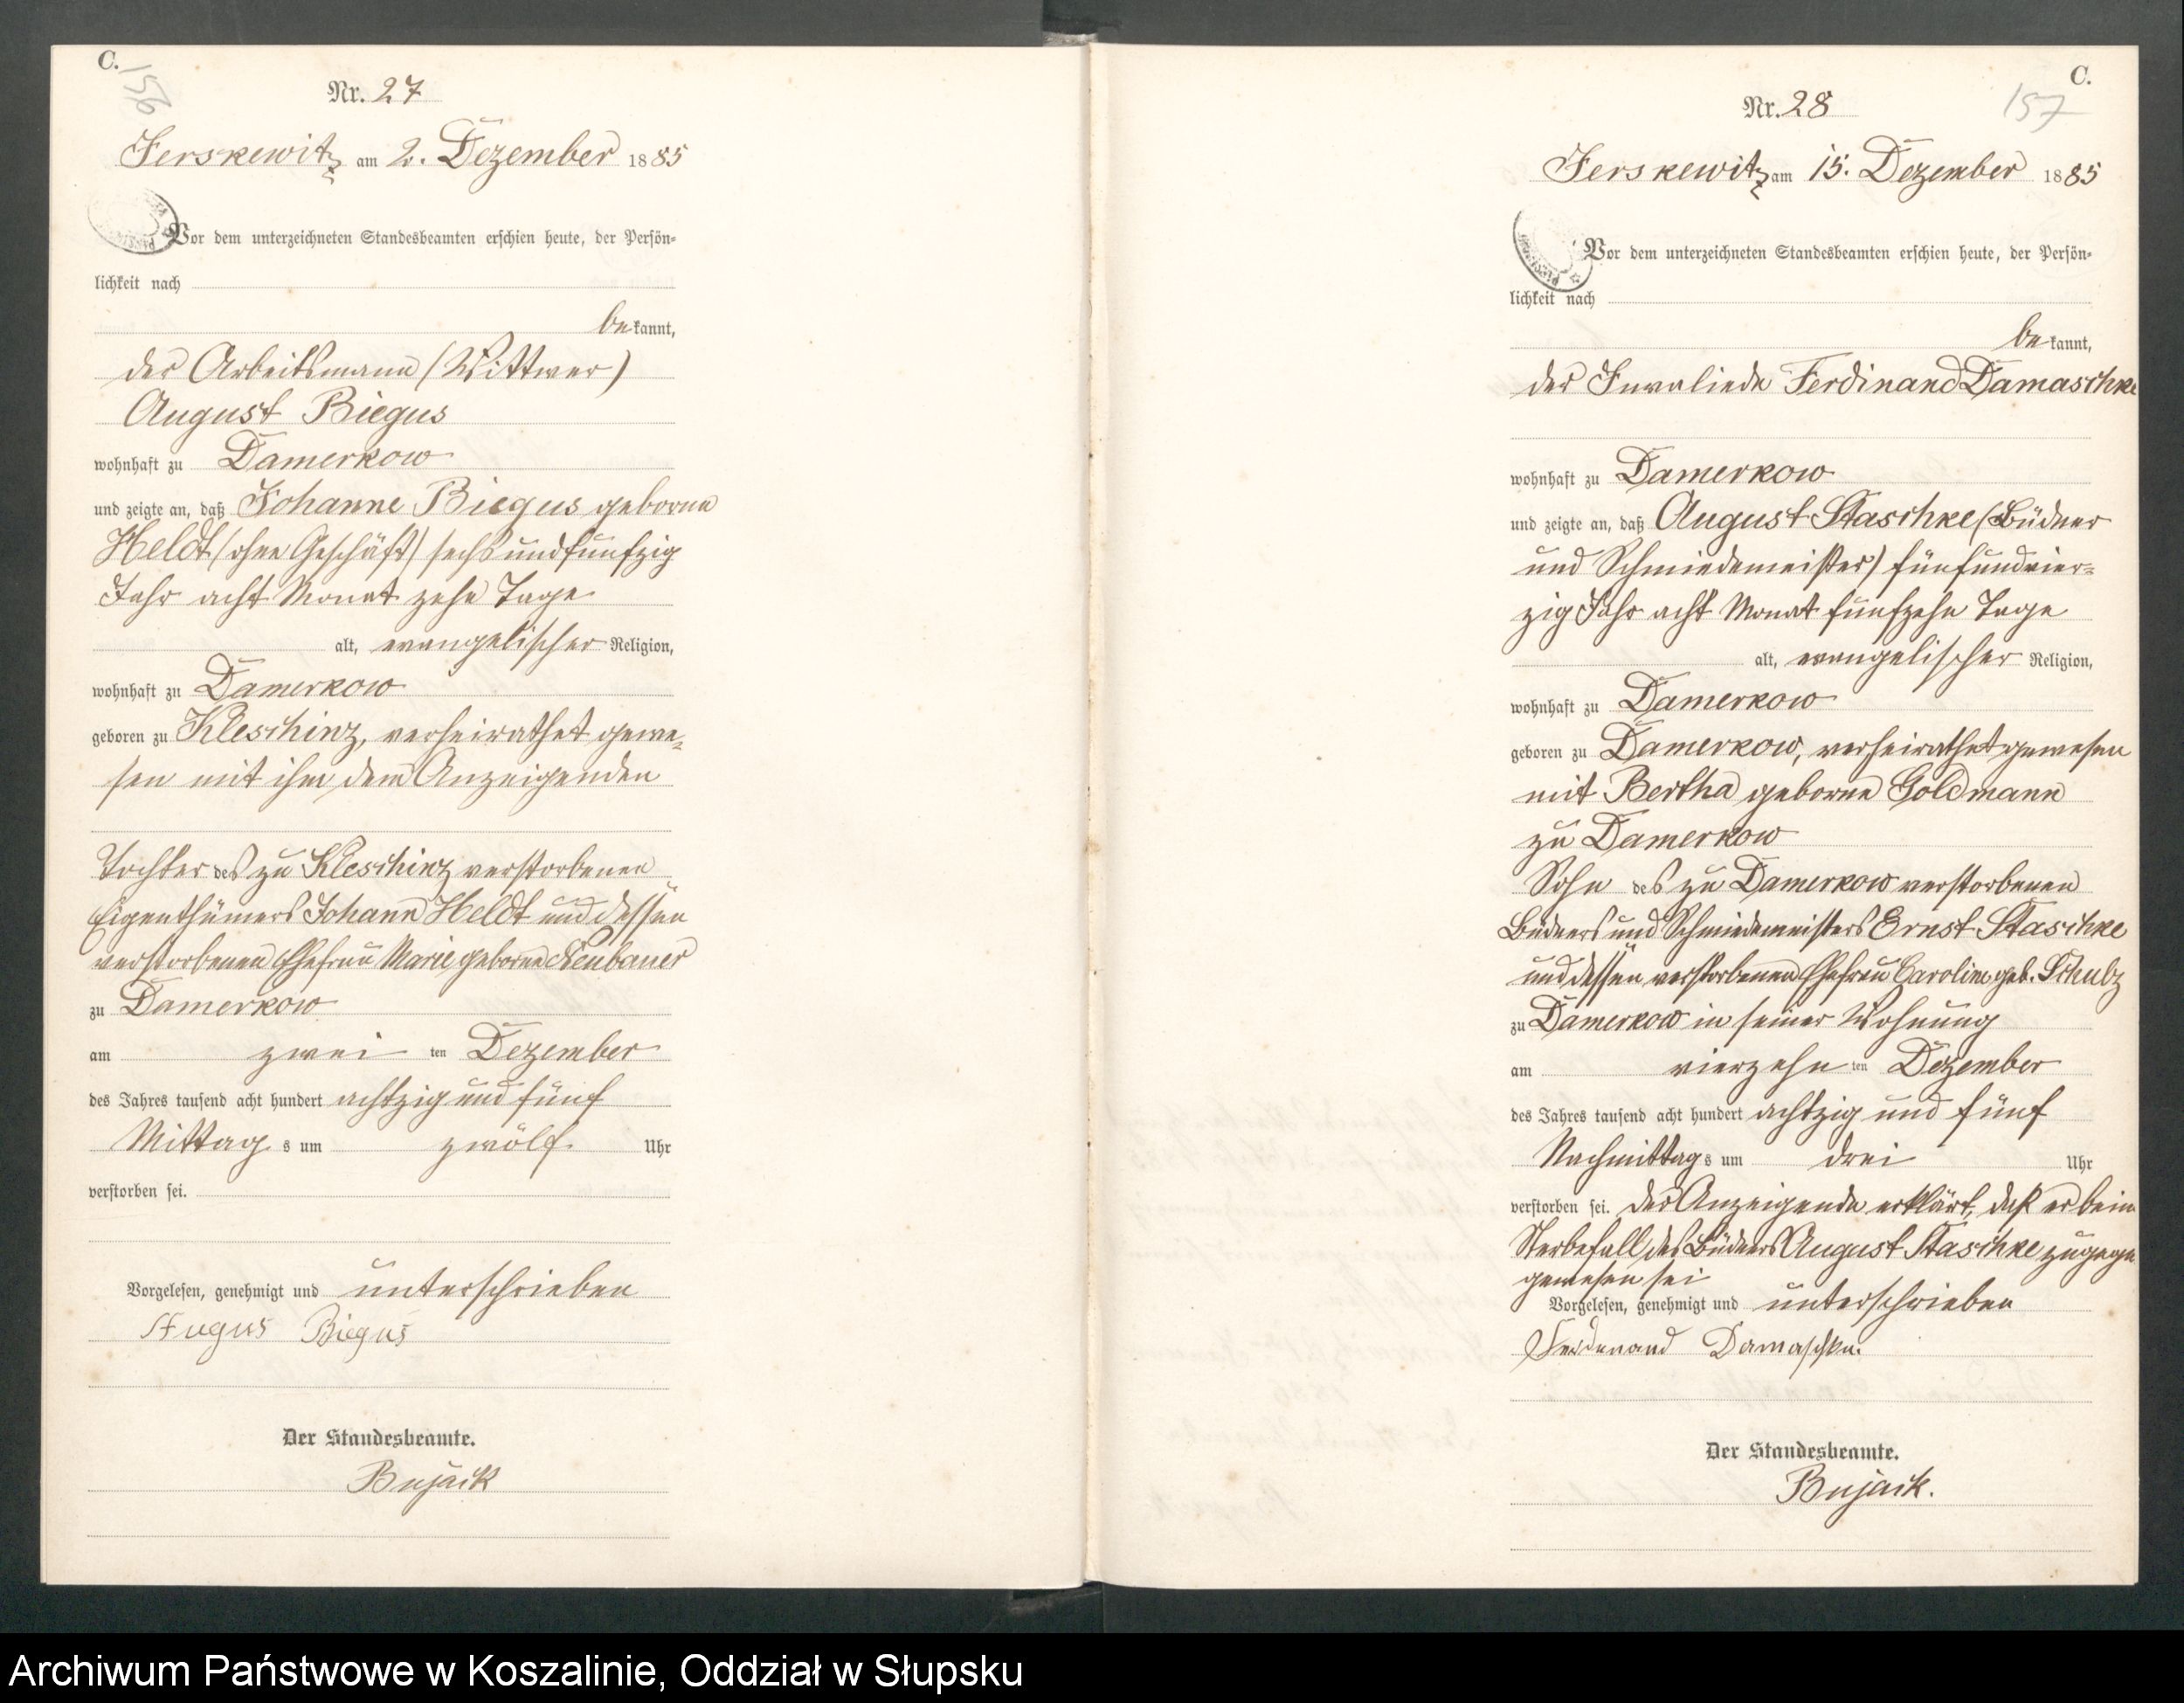 C.
156
Nr. 27
Ferskewitz am 2. Dezember 1885
Vor dem unterzeichneten Standesbeamten erschien heute, der Persön-
lichkeit nach
bekannt,
der Arbeitsmann (Wittwer)
August Biegus
wohnhaft zu Damerkow
und zeigte an, daß Johanne Biegus geborne
Heldt (ohne Geschäft) sechsundfünfzig
Jahr acht Monat zehn Tage
alt, evangelischer Religion,
wohnhaft zu Damerkow
geboren zu Kleschinz, verheirathet gewe-
sen mit ihm dem Anzeigenden
Tochter des zu Kleschinz verstorbenen
Eigenthümers Johann Heldt und dessen
verstorbenen Ehefrau Marie geborne Neubauer
zu Damerkow
am zwei ten Dezember
des Jahres tausend acht hundert achtzig und fünf
Mittags um zwölf Uhr
verstorben sei.
Vorgelesen, genehmigt und unterschrieben
Augus Biegus
Der Standesbeamte.
Bujack
C.
157
Nr. 28
Ferskewitz am 15. Dezember 1885
Vor dem unterzeichneten Standesbeamten erschien heute, der Persön-
lichkeit nach
bekannt,
der Invaliede Ferdinand Damaschke
wohnhaft zu Damerkow
und zeigte an, daß August Staschke (Büdner
und Schmiedemeister) fünfundvier-
zig Jahr acht Monat fünfzehn Tage
alt, evangelischer Religion,
wohnhaft zu Damerkow
geboren zu Damerkow, verheirathet gewesen
mit Bertha geborne Goldmann
zu Damerkow
Sohn des zu Damerkow verstorbenen
Büdners und Schmiedemeisters Ernst Staschke
und dessen verstorbenen Ehefrau Caroline geb. Schulz
zu Damerkow in seiner Wohnung
am vierzehn ten Dezember
des Jahres tausend acht hundert achtzig und fünf
Nachmittags um drei Uhr
verstorben sei. Der Anzeigende erklärt, daß er beim
Sterbefall des Büdners August Staschke zugege
gewesen sei
Vorgelesen, genehmigt und unterschrieben
Ferdenand Damaschke.
Der Standesbeamte.
Bujack.
Archiwum Państwowe w Koszalinie, Oddział w Słupsku